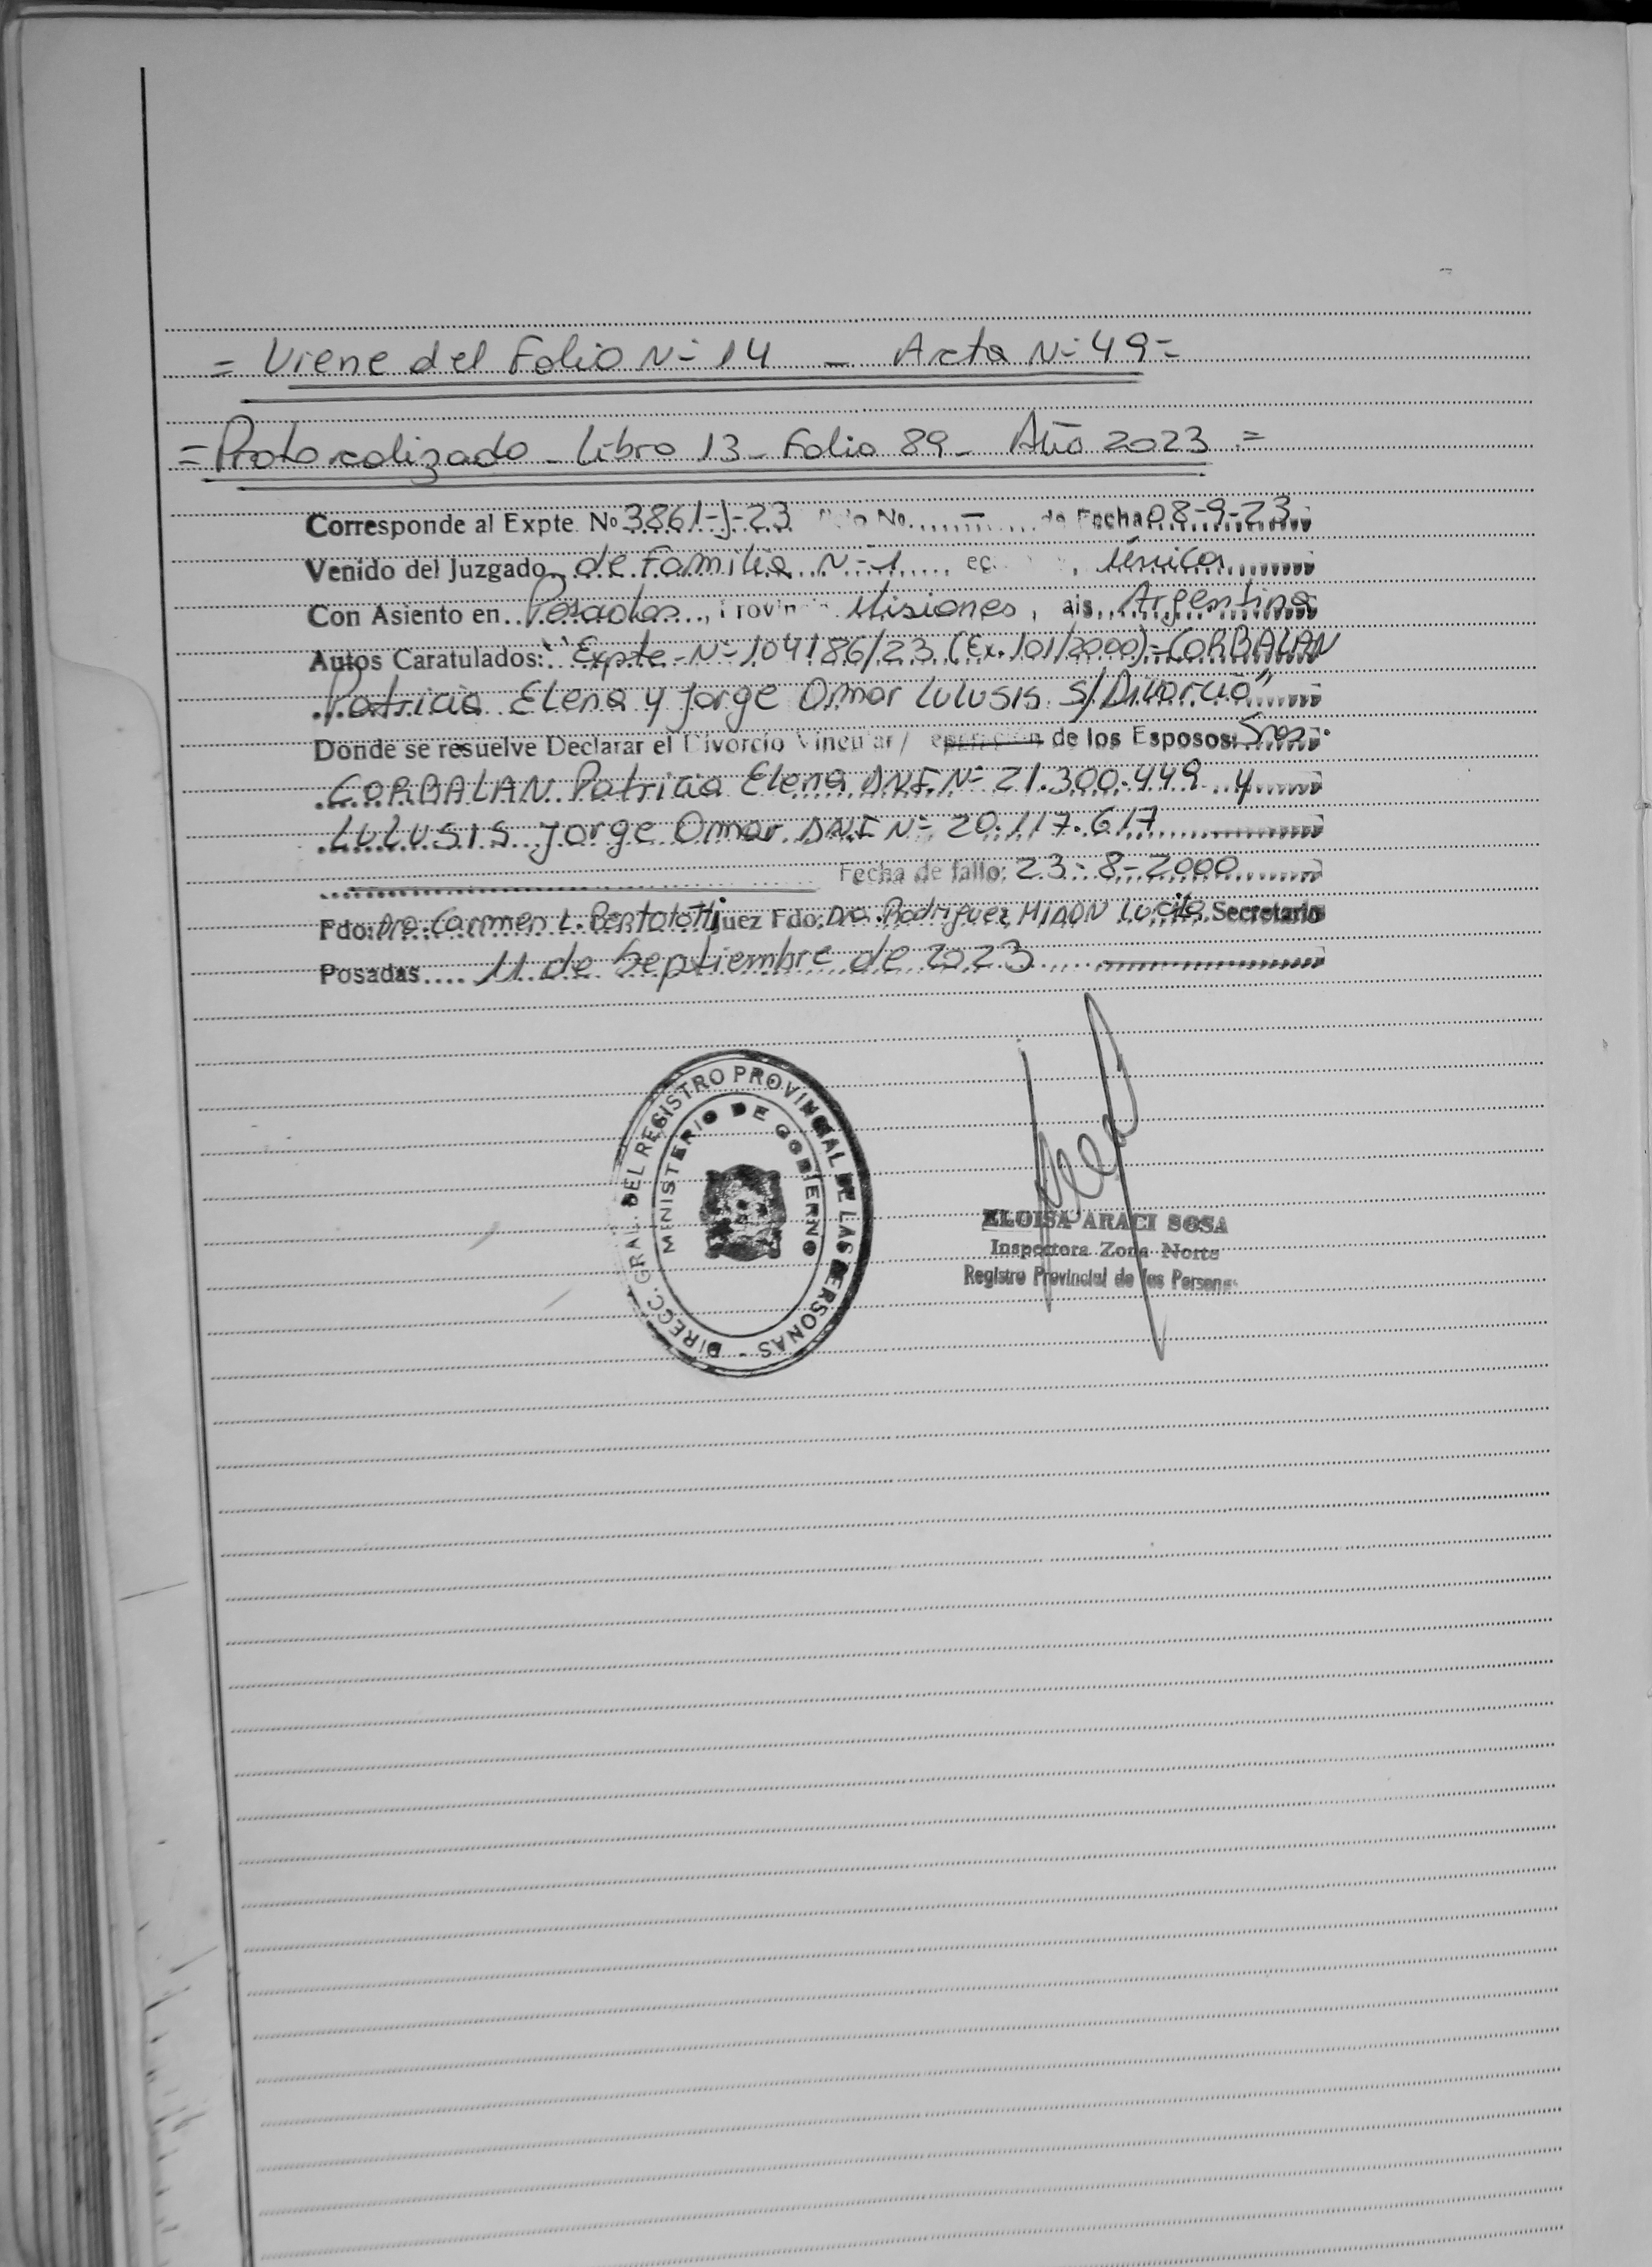 = Viene del Folio Nº 14 - Acta Nº 49 =
= Protocolizado - Libro 13 - Folio 89 - Año 2023 =
Corresponde al Expte. Nº 3861-J-23 No. - de Fecha 08-9-23
Venido del Juzgado de Familia Nº 1 Única
Con Asiento en Posadas, Provin Misiones, ais Argentina
Autos Caratulados: "Expte Nº 104186/23 (Ex. 101/2000) - CORBALAN
Patricia Elena y Jorge Omar LULUSIS S/Divorcio"
Donde se resuelve Declarar el Divorcio Vincular/ eparación de los Esposos: Sres.
CORBALAN Patricia Elena DNI Nº 21.300.449 y
LULUSIS Jorge Omar DNI Nº 20.117.617
Fecha de fallo: 23-8-2000
Fdo: Dra. Carmen L. Bertolotti Juez Fdo: Dra. Rodriguez MIÑON Lucila Secretario
Posadas.... 11 de Septiembre de 2023
DIRECC. GRAL. DEL REGISTRO PROVINCIAL DE LAS PERSONAS -
MINISTERIO DE GOBIERNO
ELOISA ARACI SOSA
Inspectora Zona Norte
Registro Provincial de las Personas